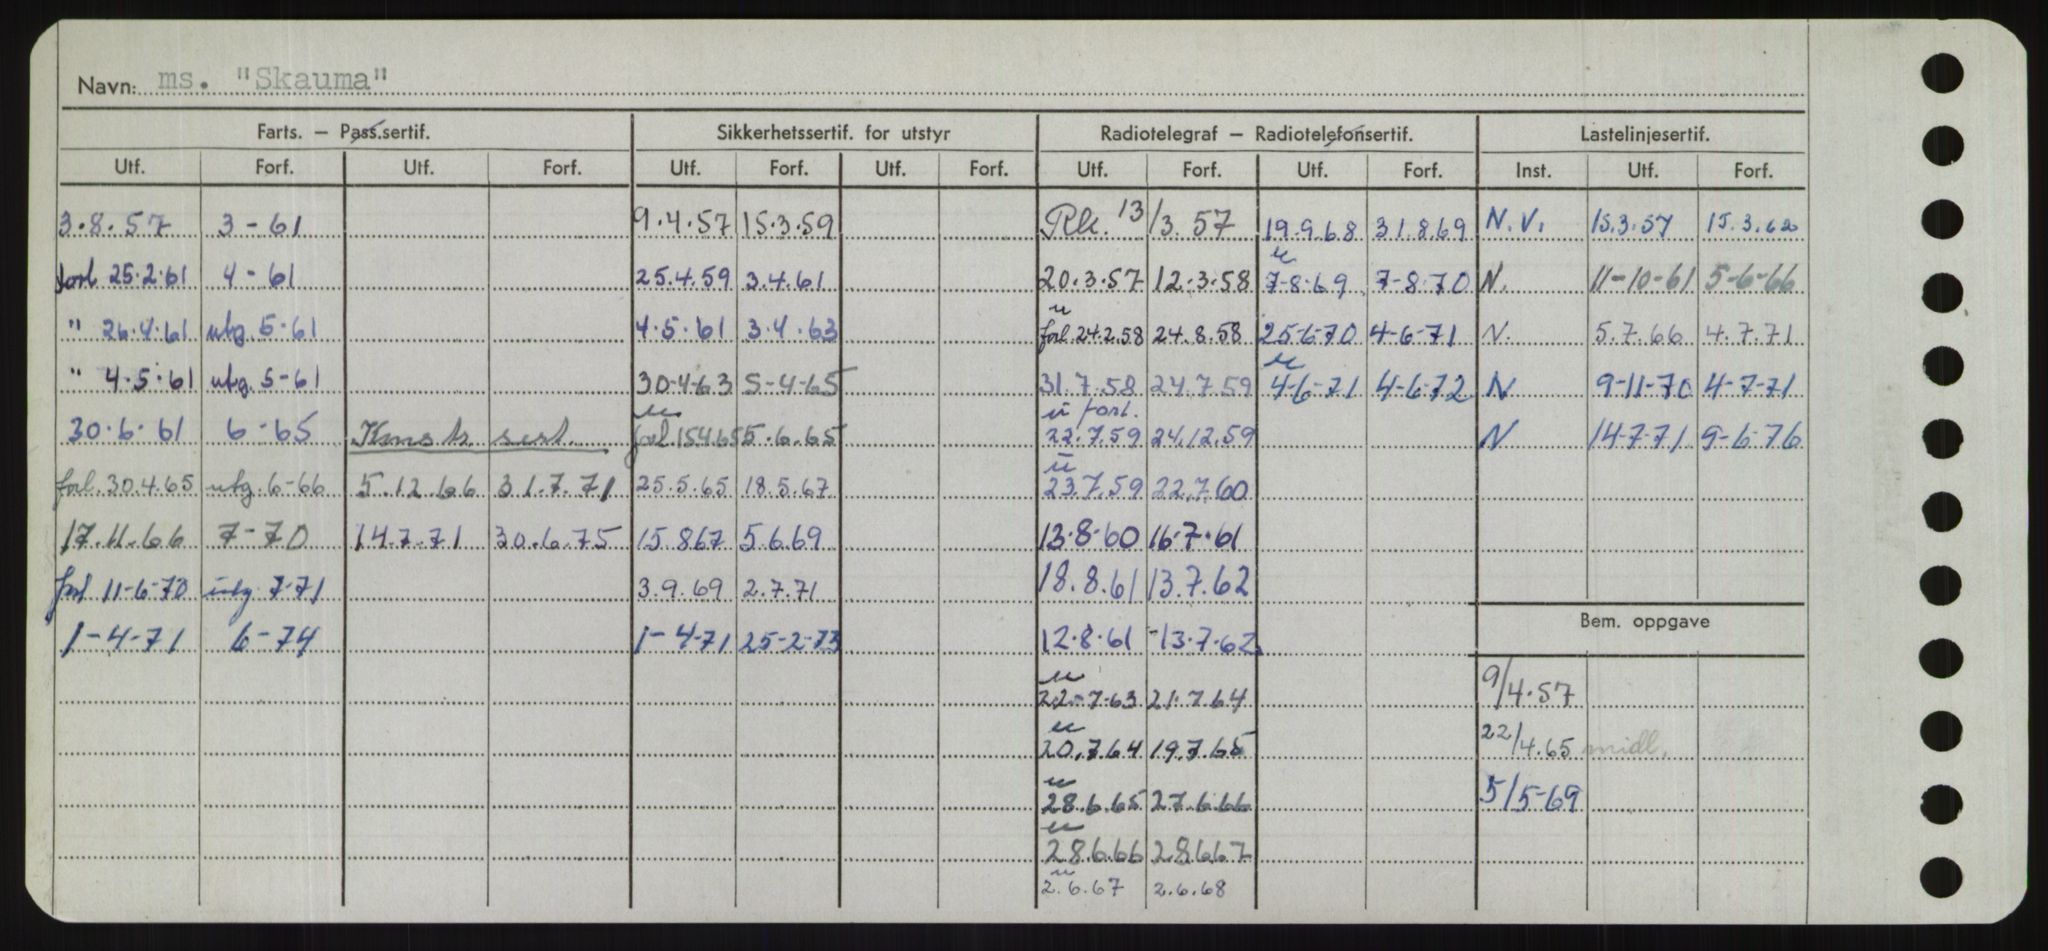 Navn: ms. "Skauma"
Farts. — Pass.sertif. Sikkerhetssertif. for utstyr Radiotelegraf — Radiotelefonsertif. Lastelinjesertif.
Utf. Forf. Utf. Forf. Utf. Forf. Utf. Forf. Utf. Forf. Utf. Forf. Inst. Utf. Forf.
3.8.57 3-61 9.4.57 15.3.59 13/3.57 19.9.68 31.8.69 N.V. 15.3.57 15.3.62
forl 25.2.61 4-61 25.4.59 3.4.61 20.3.57 12.3.58 7-8-69 7-8-70 N. 11-10-61 5-6-66
" 26.4.61 utg. 5-61 4.5.61 3.4.63 forl 24.2.58 24.8.58 25-6-70 4-6-71 N. 5.7.66 4.7.71
" 4.5.61 utg. 5-61 30-4-63 5-4-65 31.7.58 24.7.59 4-6-71 4-6-72 N 9-11-70 4-7-71
30.6.61 6-65 sert. forl. 15.4.65 5.6.65 forl. 22.7.59 24.12.59 N 14-7-71 9-6-76
forl. 30.4.65 utg. 6-66 5.12.66 31.7.71 25.5.65 18.5.67 23.7.59 22.7.60
17.11.66 7-70 14.7.71 30.6.75 15.8.67 5.6.69 13.8.60 16.7.61
forl 11-6-70 utg. 7-71 3.9.69 2.7.71 18.8.61 13.7.62
1-4-71 6-74 1-4-71 25-2-73 12.8.61 -13.7.62
Bem. oppgave
22-7-63 21.7.64 9/4.57
20.7.64 19.7.65 22/4.65 midl.
28.6.65 27.6.66 5/5-69
28.6.66 28.6.67
2.6.67 2.6.68